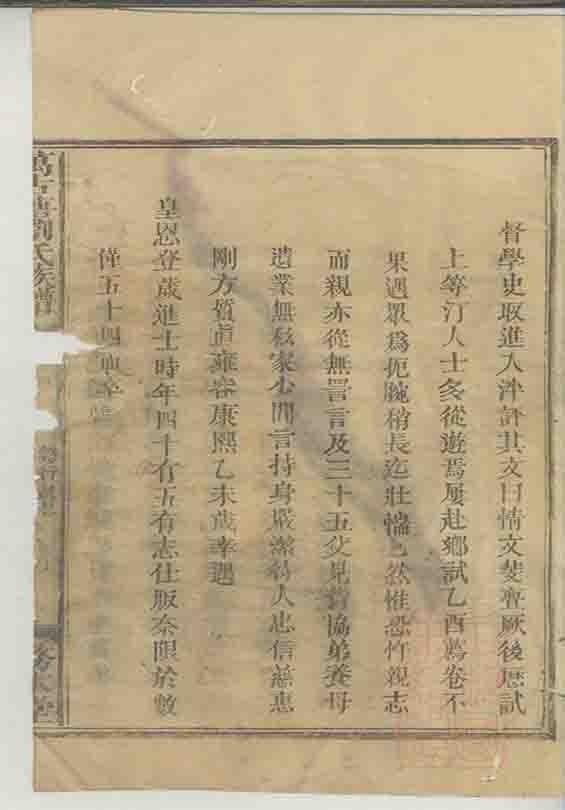 督學史取進入泮評其文曰情文斐亹厥後歷試
上等汀人士多從遊焉屢赴鄉試乙酉薦卷不
果遇眾為扼腕稍長迄壯惴惴然惟恐忤親志
而親亦從無詈言及三十五父見背協弟養母
遺業無私家少閒言持身嚴潔待人忠信慈惠
剛方質直雍容康熙乙未歲幸遇
皇恩登歲進士時年四十有五有志仕版奈限於數
僅五十四而卒
劉氏族譜